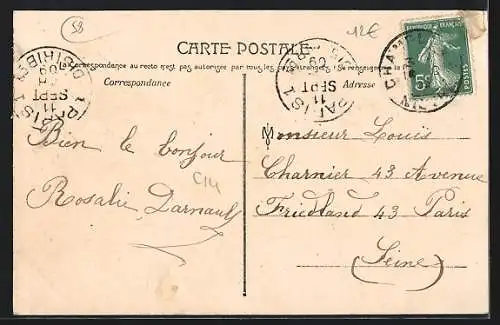 58
12€
CARTE POSTALE
La Correspondance au recto n'est pas autorisée par tous les pays étrangers (Se renseigner à la
Correspondance
Adresse
PARIS 1
11
SEPT
09
PARIS 1
11
SEPT
09
RÉPUBLIQUE FRANÇAISE
5c
POSTES
Monsieur Louis
Bien le bonjour
Charnier 43 Avenue
C14
Rosalie Darnault
Friedland 43 Paris
(Seine)